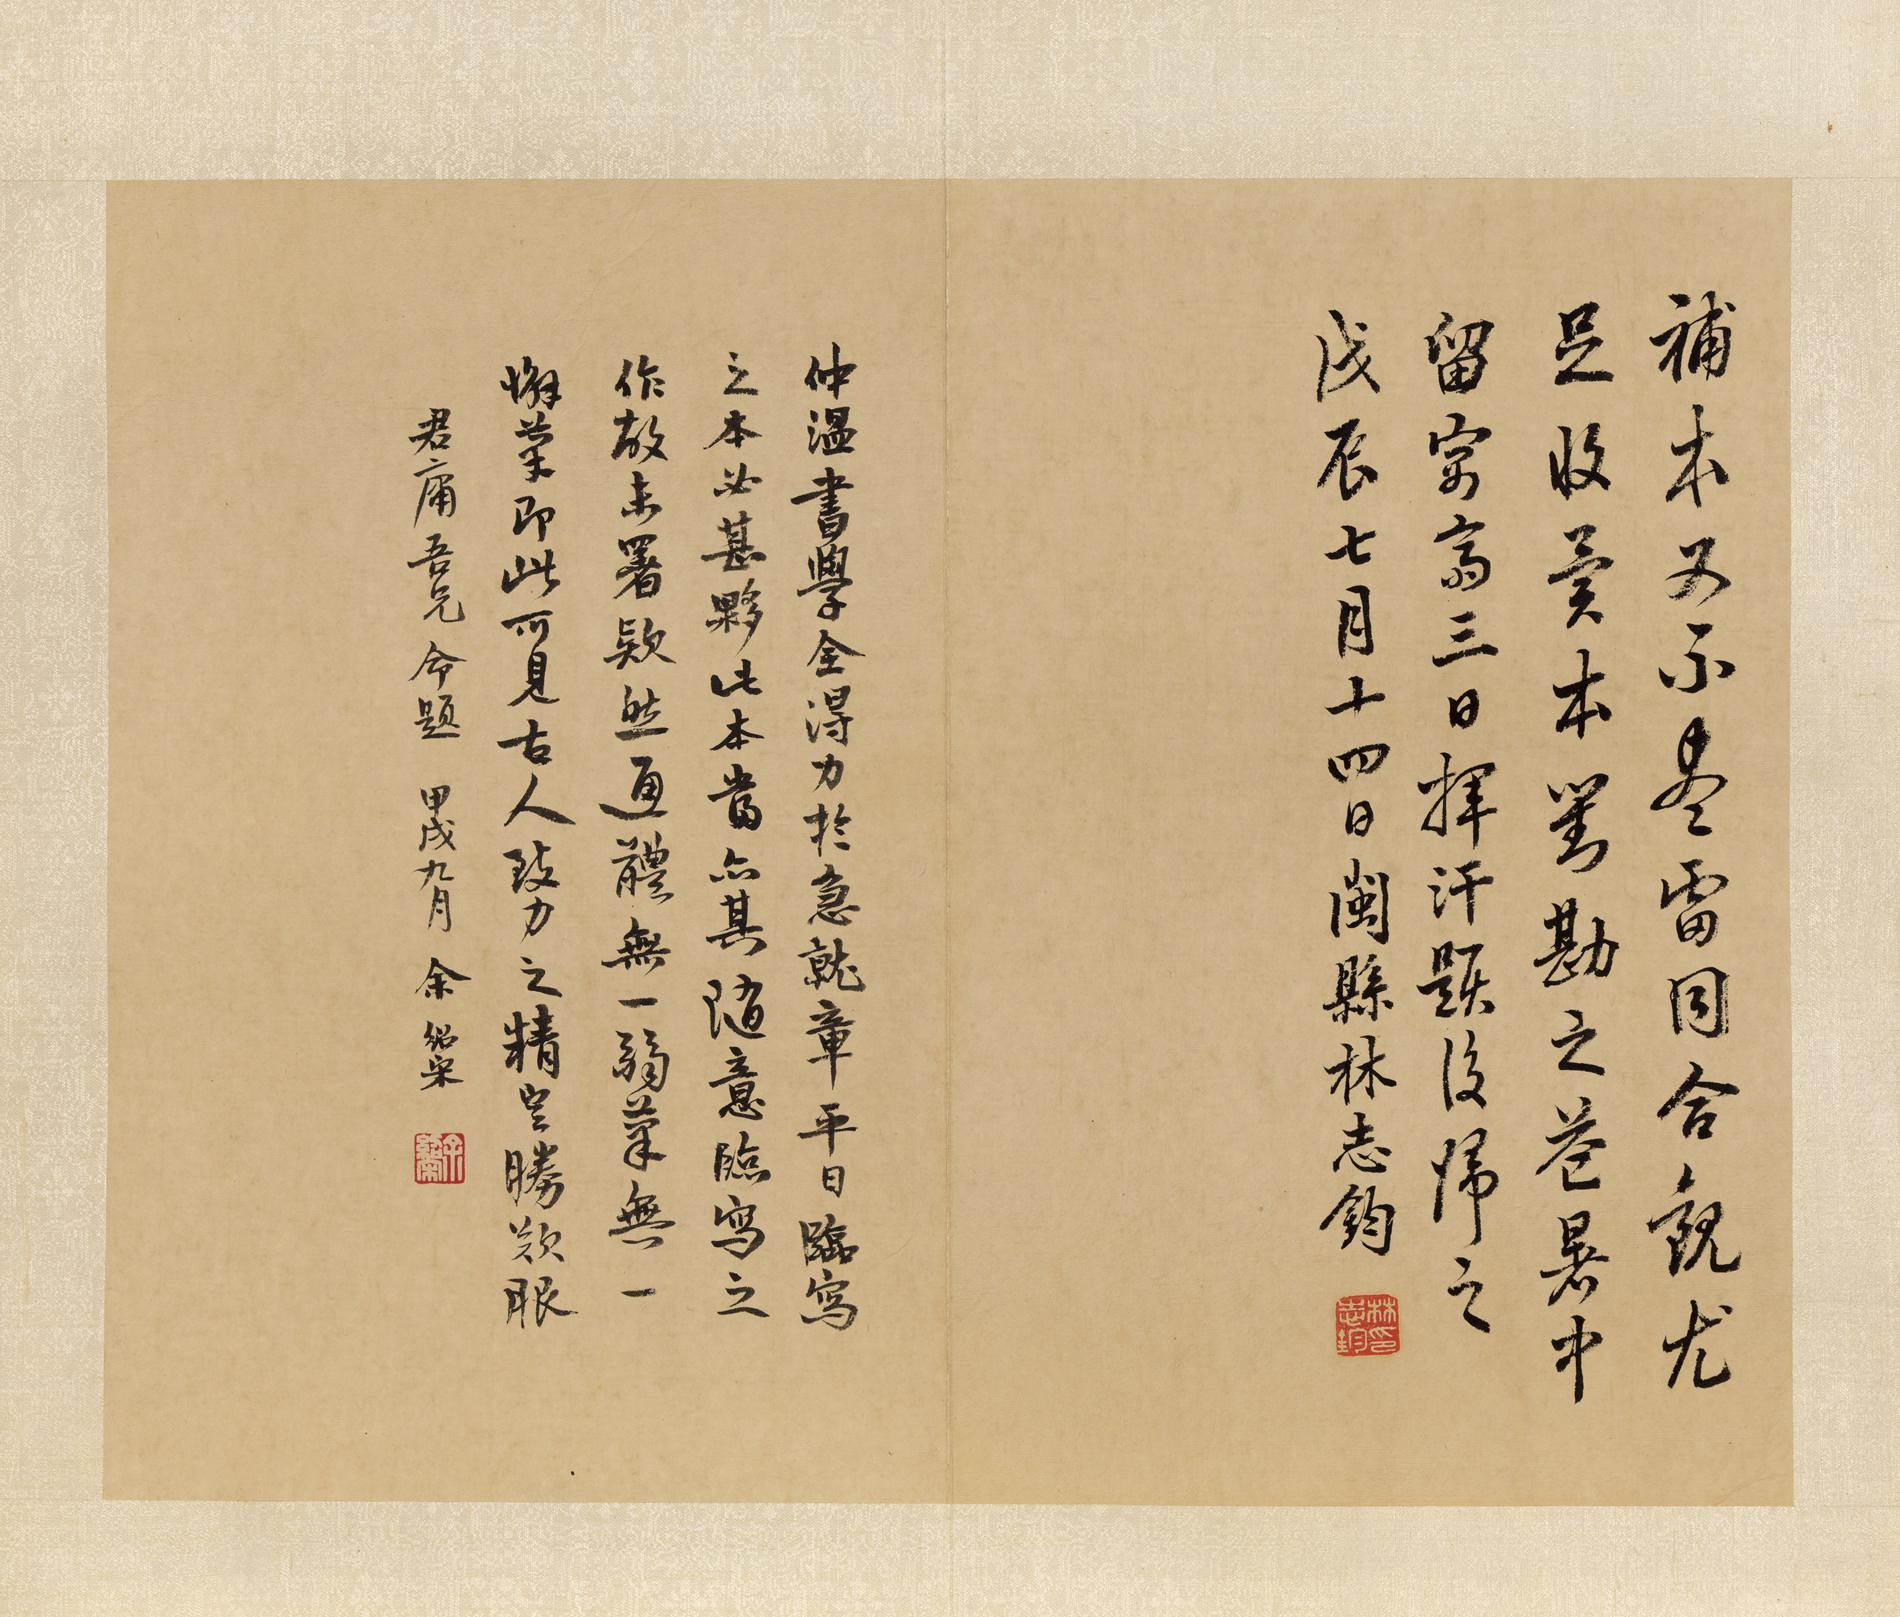 補本又不盡雷同合觀尤
足收賣本對勘之卷暑中
留寄齋三日揮汗題後歸之
戊辰七月十四日閩縣林志鈞
林志鈞印
仲溫書學全得力於急就章平日臨寫
之本必甚夥此本當亦其隨意臨寫之
作故未署款然通體無一弱筆無一
懈筆即此可見古人致力之精空勝歎眼
君庸吾兄命題 甲戌九月 余紹宋
余紹宋